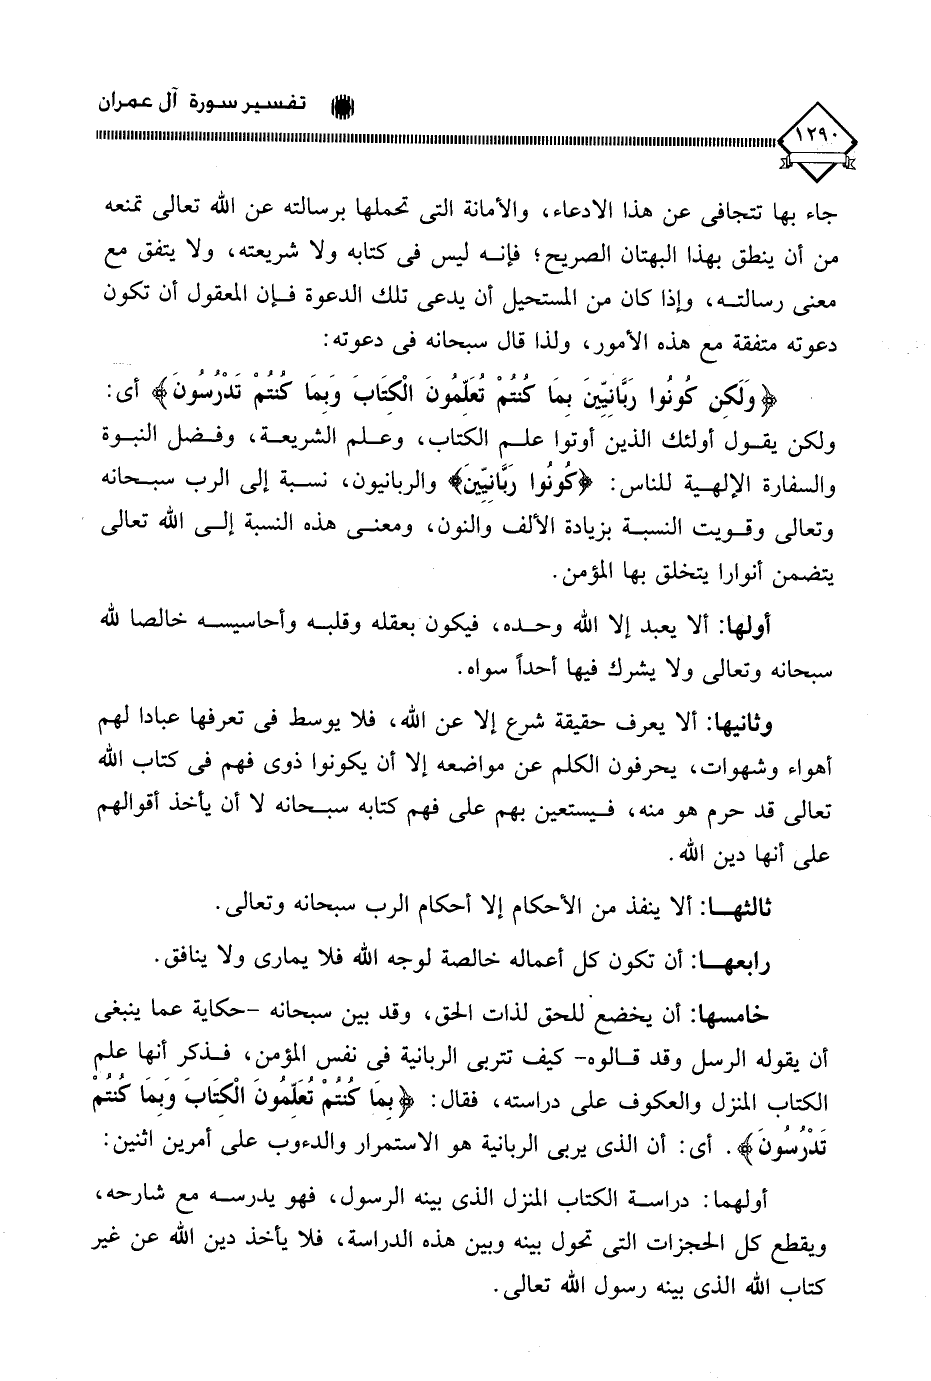 تفسير سورة آل عمران
١٢٩٠
جاء بها تتجافى عن هذا الادعاء، والأمانة التى تحملها برسالته عن الله تعالى تمنعه
من أن ينطق بهذا البهتان الصريح؛ فإنه ليس فى كتابه ولا شريعته، ولا يتفق مع
معنى رسالته، وإذا كان من المستحيل أن يدعى تلك الدعوة فإن المعقول أن تكون
دعوته متفقة مع هذه الأمور، ولذا قال سبحانه فى دعوته:
﴿وَلَكِن كُونُوا رَبَّانِيِّينَ بِمَا كُنتُمْ تُعَلِّمُونَ الْكِتَابَ وَبِمَا كُنتُمْ تَدْرُسُونَ﴾ أى:
ولكن يقول أولئك الذين أوتوا علم الكتاب، وعلم الشريعة، وفضل النبوة
والسفارة الإلهية للناس: ﴿كُونُوا رَبَّانِيِّينَ﴾ والربانيون، نسبة إلى الرب سبحانه
وتعالى وقويت النسبة بزيادة الألف والنون، ومعنى هذه النسبة إلى الله تعالى
يتضمن أنوارا يتخلق بها المؤمن.
أولها: ألا يعبد إلا الله وحده، فيكون بعقله وقلبه وأحاسيسه خالصا لله
سبحانه وتعالى ولا يشرك فيها أحداً سواه.
وثانيها: ألا يعرف حقيقة شرع إلا عن الله، فلا يوسط فى تعرفها عبادا لهم
أهواء وشهوات، يحرفون الكلم عن مواضعه إلا أن يكونوا ذوى فهم فى كتاب الله
تعالى قد حرم هو منه، فيستعين بهم على فهم كتابه سبحانه لا أن يأخذ أقوالهم
على أنها دين الله.
ثالثها: ألا ينفذ من الأحكام إلا أحكام الرب سبحانه وتعالى.
رابعها: أن تكون كل أعماله خالصة لوجه الله فلا يمارى ولا ينافق.
خامسها: أن يخضع للحق لذات الحق، وقد بين سبحانه -حكاية عما ينبغى
أن يقوله الرسل وقد قالوه- كيف تتربى الربانية فى نفس المؤمن، فذكر أنها علم
الكتاب المنزل والعكوف على دراسته، فقال: ﴿بِمَا كُنتُمْ تُعَلِّمُونَ الْكِتَابَ وَبِمَا كُنتُمْ
تَدْرُسُونَ﴾. أى: أن الذى يربى الربانية هو الاستمرار والدءوب على أمرين اثنين:
أولهما: دراسة الكتاب المنزل الذى بينه الرسول، فهو يدرسه مع شارحه،
ويقطع كل الحجزات التى تحول بينه وبين هذه الدراسة، فلا يأخذ دين الله عن غير
كتاب الله الذى بينه رسول الله تعالى.